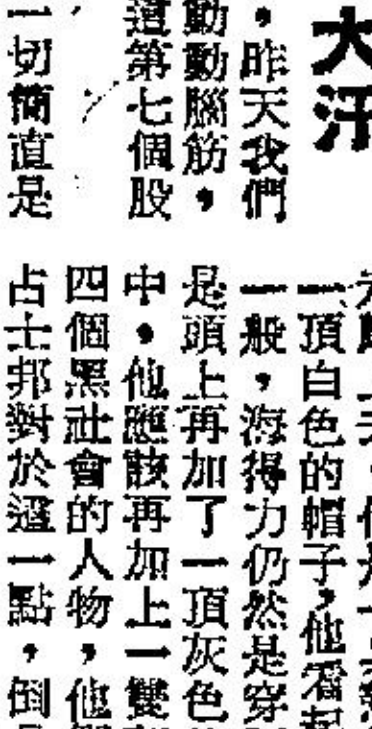 大汗
，昨天我們
動動腦筋，
這第七個股
一切簡直是
一頂白色的帽子，他看起
一般，海得力仍然是穿
是頭上再加了一頂灰色
中，他應該再加上一雙
四個黑社會的人物，他
占士邦對於這一點，倒